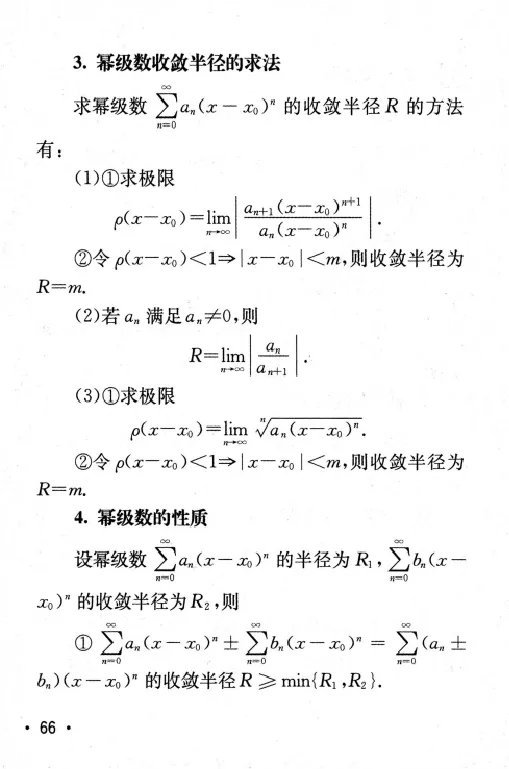 3. 幂级数收敛半径的求法
求幂级数 $\sum_{n=0}^{\infty} a_n(x-x_0)^n$ 的收敛半径 R 的方法
有:
(1)①求极限
$\rho(x-x_0)=\lim_{n\to\infty}\left|\frac{a_{n+1}(x-x_0)^{n+1}}{a_n(x-x_0)^n}\right|.$
②令 $\rho(x-x_0)<1\Rightarrow|x-x_0|<m$,则收敛半径为
R=m.
(2)若 $a_n$ 满足 $a_n\neq 0$,则
$R=\lim_{n\to\infty}\left|\frac{a_n}{a_{n+1}}\right|.$
(3)①求极限
$\rho(x-x_0)=\lim_{n\to\infty}\sqrt[n]{a_n(x-x_0)^n}.$
②令 $\rho(x-x_0)<1\Rightarrow|x-x_0|<m$,则收敛半径为
R=m.
4. 幂级数的性质
设幂级数 $\sum_{n=0}^{\infty} a_n(x-x_0)^n$ 的半径为 $R_1$,$\sum_{n=0}^{\infty} b_n(x-$
$x_0)^n$ 的收敛半径为 $R_2$,则
① $\sum_{n=0}^{\infty} a_n(x-x_0)^n \pm \sum_{n=0}^{\infty} b_n(x-x_0)^n = \sum_{n=0}^{\infty}(a_n \pm$
$b_n)(x-x_0)^n$ 的收敛半径 $R\geqslant \min\{R_1,R_2\}$.
· 66 ·